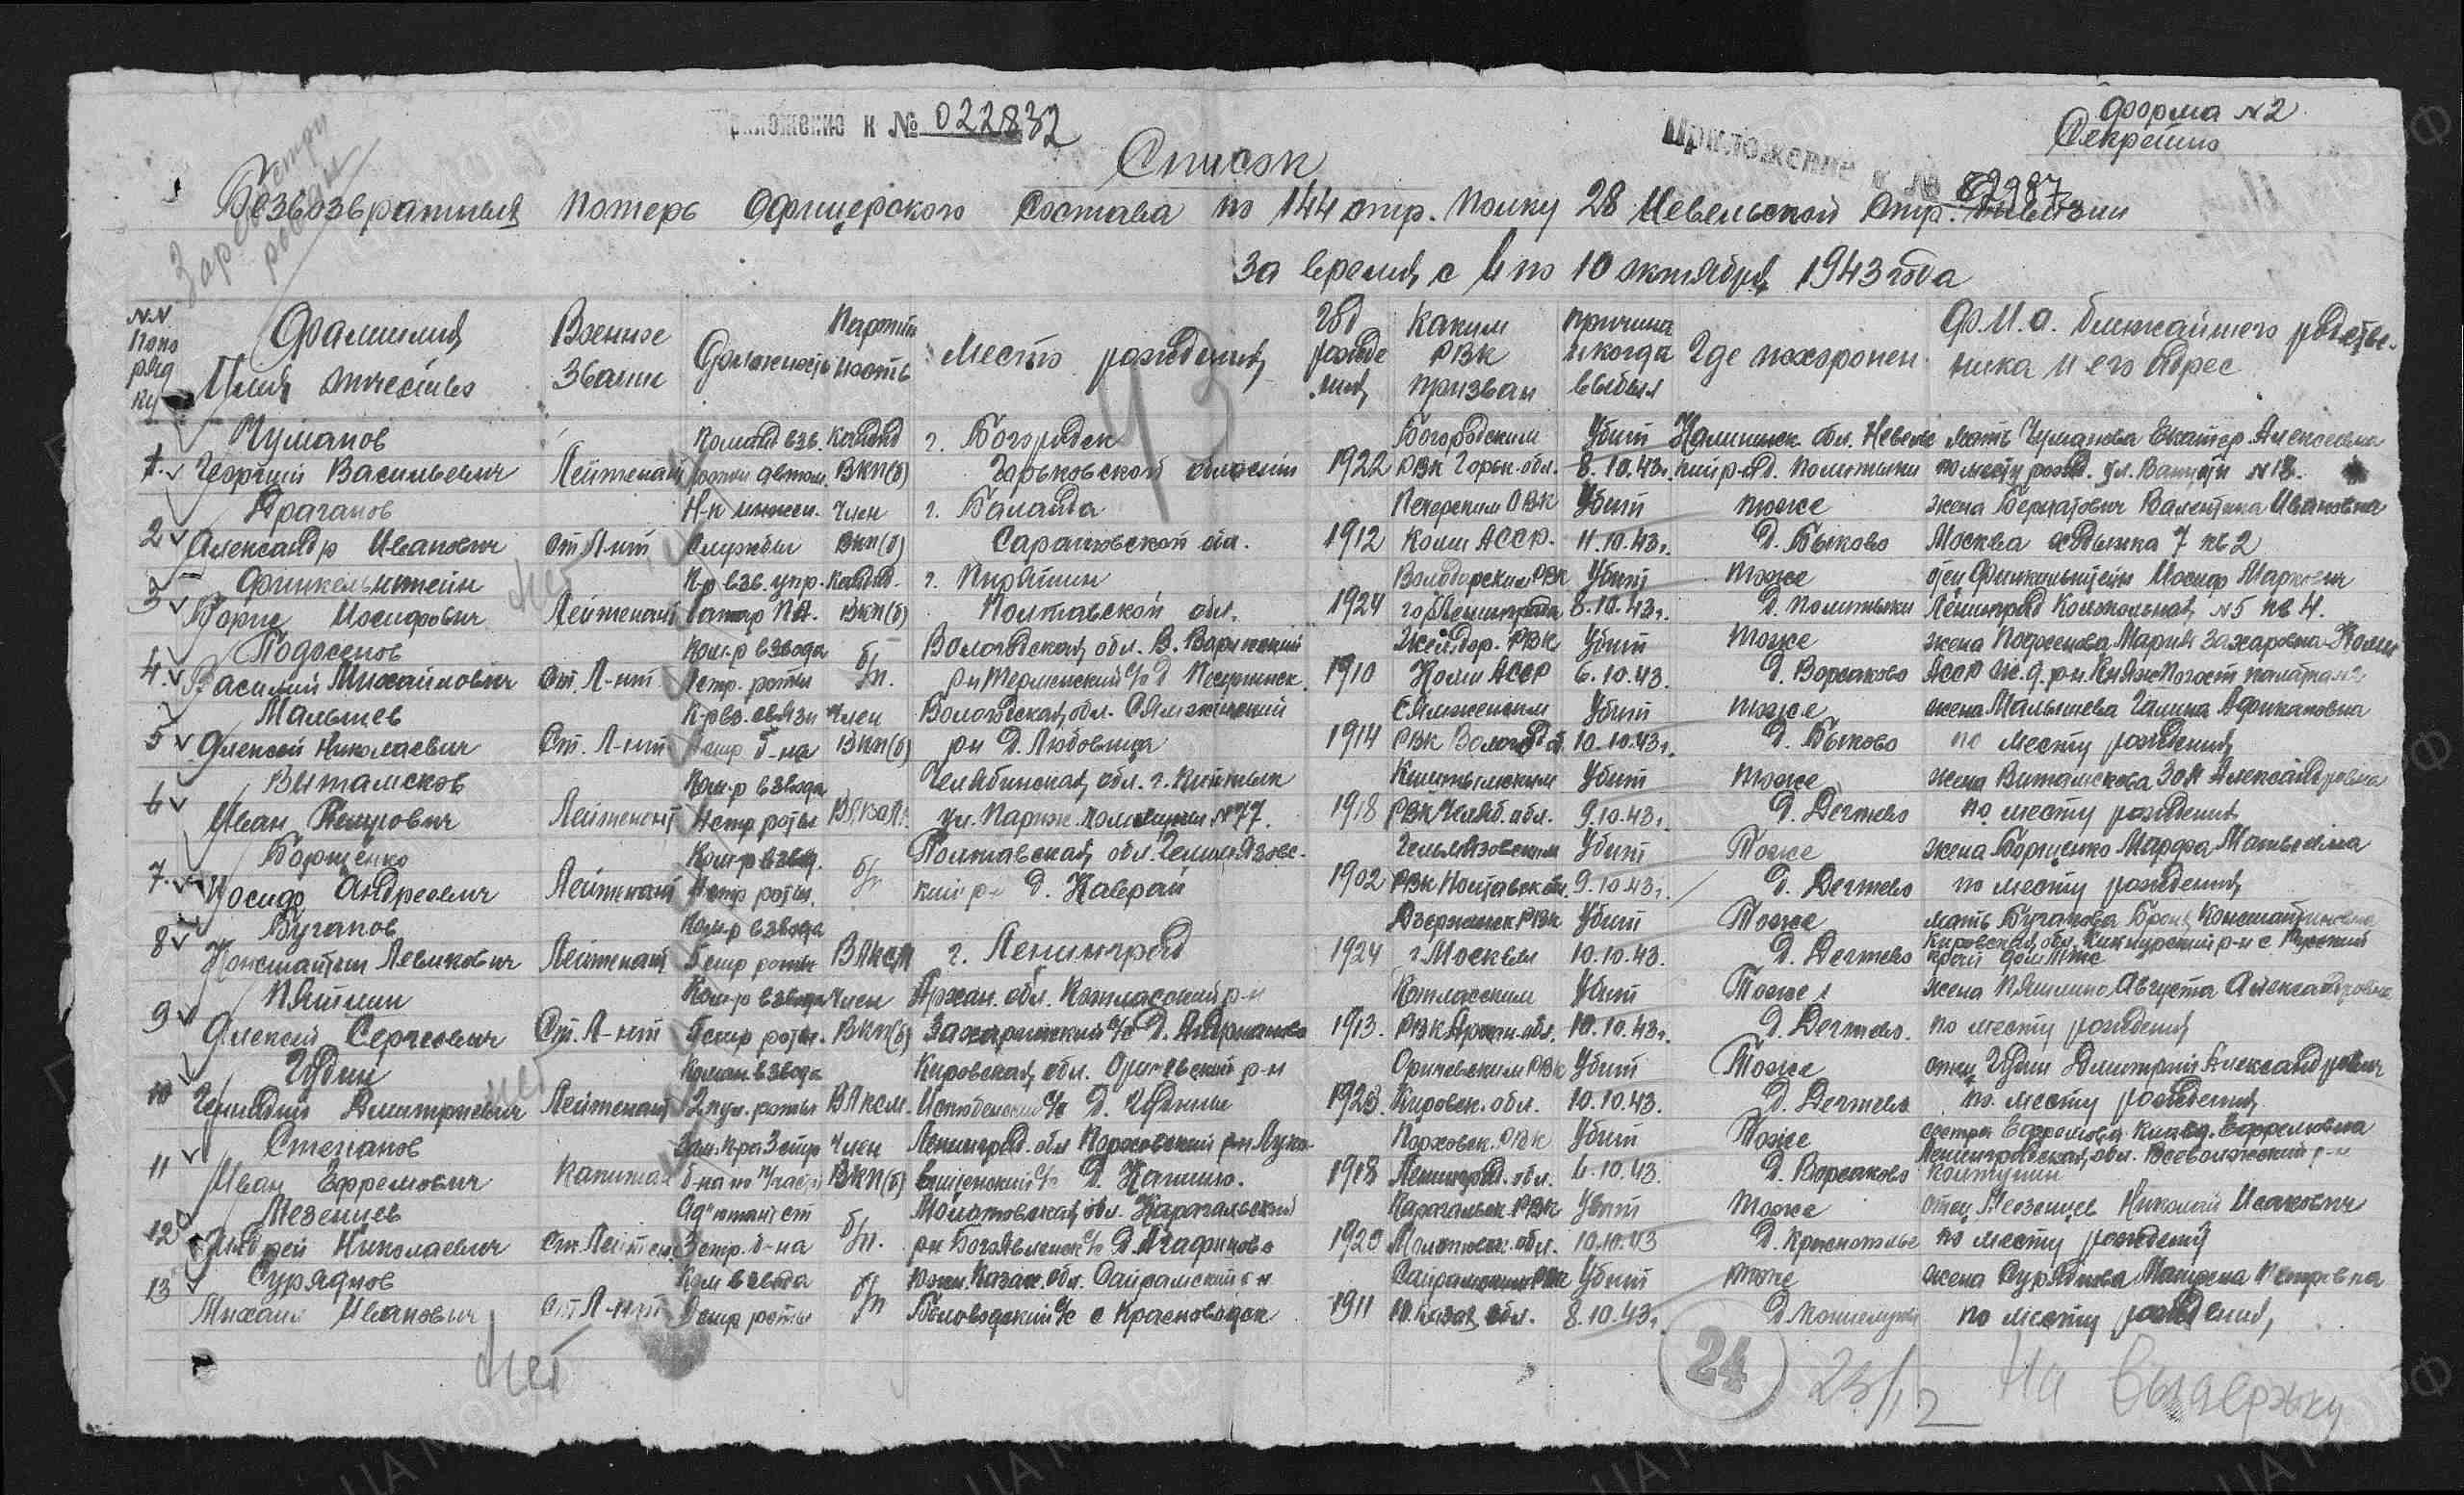 Форма №2
Секретно
Приложение к № 022832
Приложение к № 82987
Список
Безвозвратных потерь офицерского состава по 144 стр. полку 28 Невельской стр. дивизии
за время с 4 по 10 октября 1943 года
NN по поряд ку
Фамилия Имя отчество
Военное звание
Должность
Партий ность
Место рождения
год рожде ния
Каким РВК призван
причина и когда выбыл
Где похоронен
Ф.И.О. ближайшего родстве- ника и его адрес
Чуманов Команд взв. Кандид г. Богородск Богородским Убит Калининск обл. Невель мать Чуманова Екатер Алексеевна
1. Георгий Васильевич Лейтенант роты автом. ВКП(б) Горьковской области 1922 РВК Горьк. обл. 8.10.43г. ский р-н д. по месту рожд. ул. №13.
Драганов Н-к инжен. Член г. Баланда Печерским ОВК Убит тоже жена Бернатович Валентина Ивановна
2 Александр Иванович Ст. Л-нт службы ВКП(б) Саратовской обл. 1912 Коми АССР. 11.10.43г. Д. Быково Москва 7 кв 2
Финкельштейн К-р взв. упр. Кандид. г. Пирятин Володарским РВК Убит тоже отец Финкельштейн Иосиф Маркович
3 Борис Иосифович Лейтенант батар ПА. ВКП(б) Полтавской обл. 1924 гор Ленинграда 8.10.43г. Ленинград №5 кв 4.
Подосенов Ком-р взвода б/п. Вологодская обл. Желдор. РВК Убит тоже жена Подосенова Мария Захаровна Коми
4. Василий Михайлович Ст. Л-нт стр. роты 1910 Коми АССР 6.10.43. Д. Ворсаково АССР Ж.д. р-н. Княж Погост
Малышев К-р вз. связи Член Вологодская обл. Сямженский Сямженским Убит тоже жена Малышева Галина
5 Алексей Николаевич Ст. Л-нт стр б-на ВКП(б) рн Д. Любовица 1914 РВК Вологод о. 10.10.43г. Д. Быково по месту рождения
Витамсков Ком-р взвода Челябинская обл. г. Кыштым Кыштымским Убит тоже жена Витамскова Зоя Александровна
6 Иван Петрович Лейтенант стр роты ул. Париж. коммуны №77. 1918 РВК Челяб. обл. 9.10.43г. Д. Дегтево по месту рождения
Борщенко Ком-р взвод. б/п Полтавская обл. Гельмязовс- Гельмязовским Убит Тоже жена Борщенко Марфа Матвеевна
7. Иосиф Андреевич Лейтенант стр роты. кий р-н д. Каврай 1902 РВК Полтавск об. 9.10.43г. Д. Дегтево по месту рождения
Буганов Ком-р взвода Дзержинск РВК Убит Тоже мать Буганова Константиновна
8 Константин Левикович Лейтенант стр роты ВЛКСМ г. Ленинград 1924 г. Москвы 10.10.43. Д. Дегтево Кировская обл. Кикнурский р-н с Русский
край дом МТС
Пятлин Ком-р взвода Член Архан. обл. Котласский р-н Котласским Убит Тоже жена Пятлина Августа Александровна
9 Алексей Сергеевич Ст. Л-нт стр роты. ВКП(б) с/с Д. Андрианово 1913. РВК Архан. обл. 10.10.43г. Д. Дегтево. по месту рождения
Чудин Коман. взвода Кировская обл. Оричевский р-н Оричевским РВК Убит Тоже отец Чудин Дмитрий Александрович
10 Геннадий Дмитриевич Лейтенант 2 пул. роты ВЛКСМ. Истобенский с/с Д. Чудины 1923. Кировск. обл. 10.10.43. Д. Дегтево по месту рождения
Степанов Зам. к-ра 3 стр Член Ленинград. обл Порховский рн Порховск. РВК Убит Тоже сестра Ефремова Клавд. Ефремовна
11 Иван Ефремович Капитан б-на по п/части ВКП(б) с/с Д. 1918 Ленинград. обл. 6.10.43. Д. Ворсаково Ленинградская обл. Всеволожский р-н
Колтуши
Мезенцев Адъютант ст б/п. Молотовская обл. Карагайский Карагайск РВК Убит тоже отец Мезенцев Николай Исакович
12 Андрей Николаевич Ст. Лейтен. 3 стр. б-на рн Богоявленск с/с Д. Агафоново 1923 Молотовск. обл. 10.10.43 Д. Краснополье по месту рождения
Суряднов Ком взвода б/п Южн. Казах. обл. Сайрамский рн Сайрамским РВК Убит тоже жена Суряднова Матрена Петровна
13 Михаил Иванович Ст Л-нт стр роты Беловодский с/с с Красноводск 1911 Ю. Казах обл. 8.10.43г. по месту рождения
Зарегистри рованы
43
нет
нет
нет
24
23/12 На выдержку
ЦА МО РФ